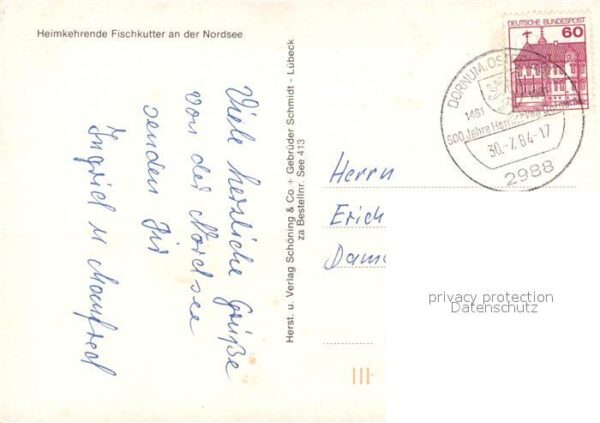 Heimkehrende Fischkutter an der Nordsee
Viele herzliche Grüße
von der Nordsee
senden Dir
Ingrid u Manfred
Herst. u. Verlag Schöning & Co + Gebrüder Schmidt - Lübeck
za Bestellnr. See 413
DEUTSCHE BUNDESPOST
60
DORNUM, OS
1481
500 Jahre
30.-7.84-17
2988
Herrn
Erich
Dam
privacy protection
Datenschutz